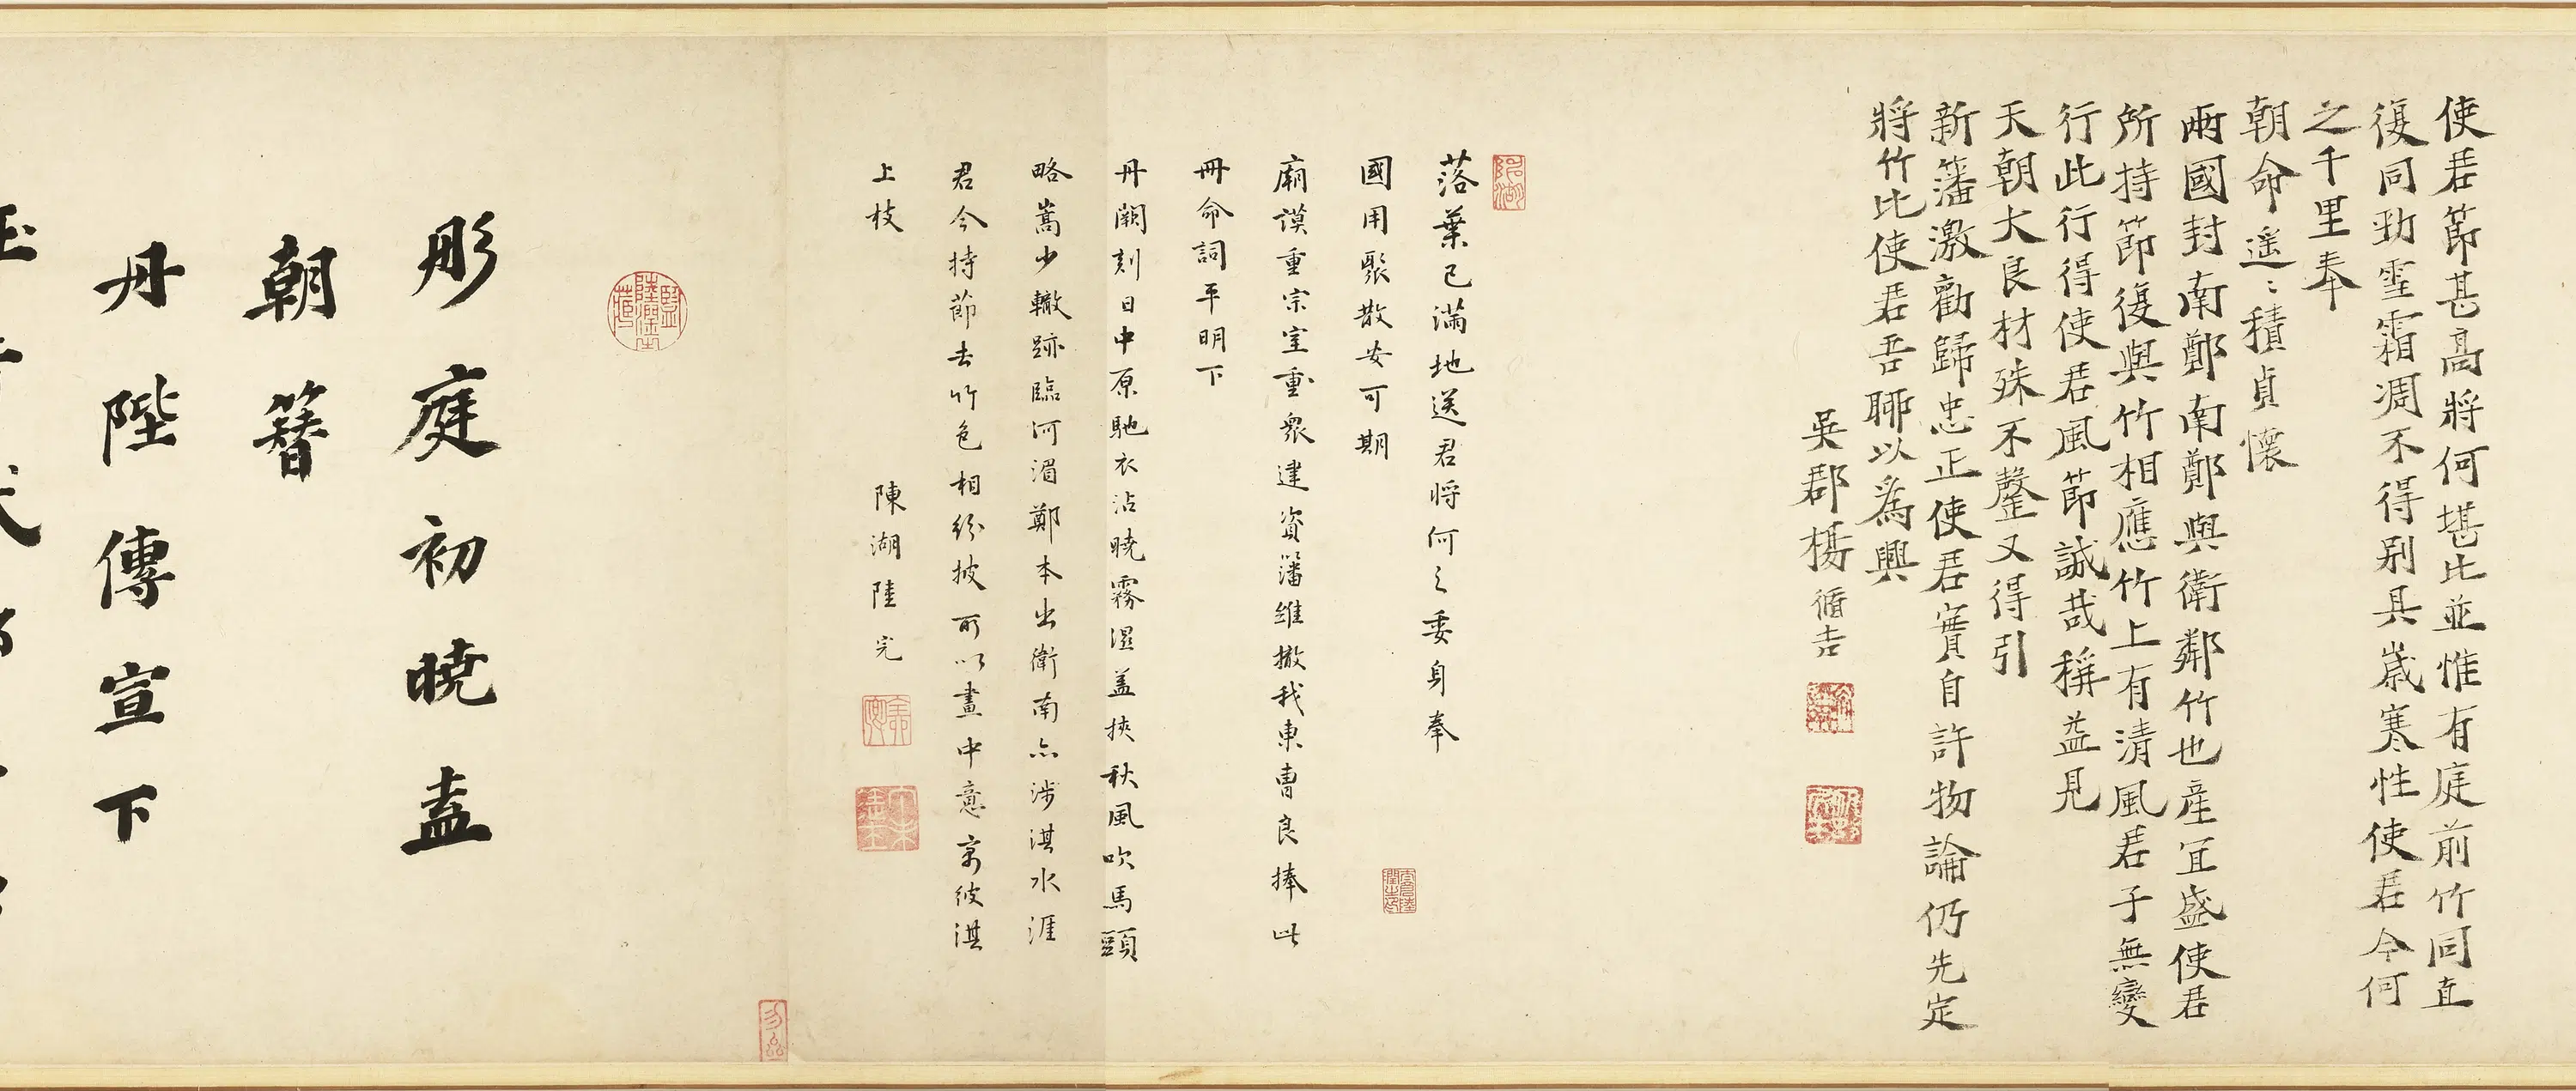 使君節甚高將何堪比並惟有庭前竹同直
復同勁雪霜凋不得别具歲寒性使君今何
之千里奉
朝命遥〻積貞懷
兩國封南鄭南鄭與衛鄰竹也産宜盛使君
所持節復與竹相應竹上有清風君子無變
行此行得使君風節誠哉稱益見
天朝大良材殊不罄又得引
新籓激勸歸忠正使君實自許物論仍先定
將竹比使君吾聊以爲興
吳郡楊循吉
落葉已滿地送君将何之委身奉
國用聚散安可期
廟謨重宗室重衆建資藩維撤我東曹良捧此
冊命詞平明下
丹闕刻日中原馳衣沾曉霧濕盖挾秋風吹馬頭
略嵩少轍跡臨河湄鄭本出衛南亦涉淇水涯
君今持節去竹色相紛披所以畫中意寄彼淇
上枝
陳湖陸完
彤庭初曉盍
朝簪
丹陛傳宣下